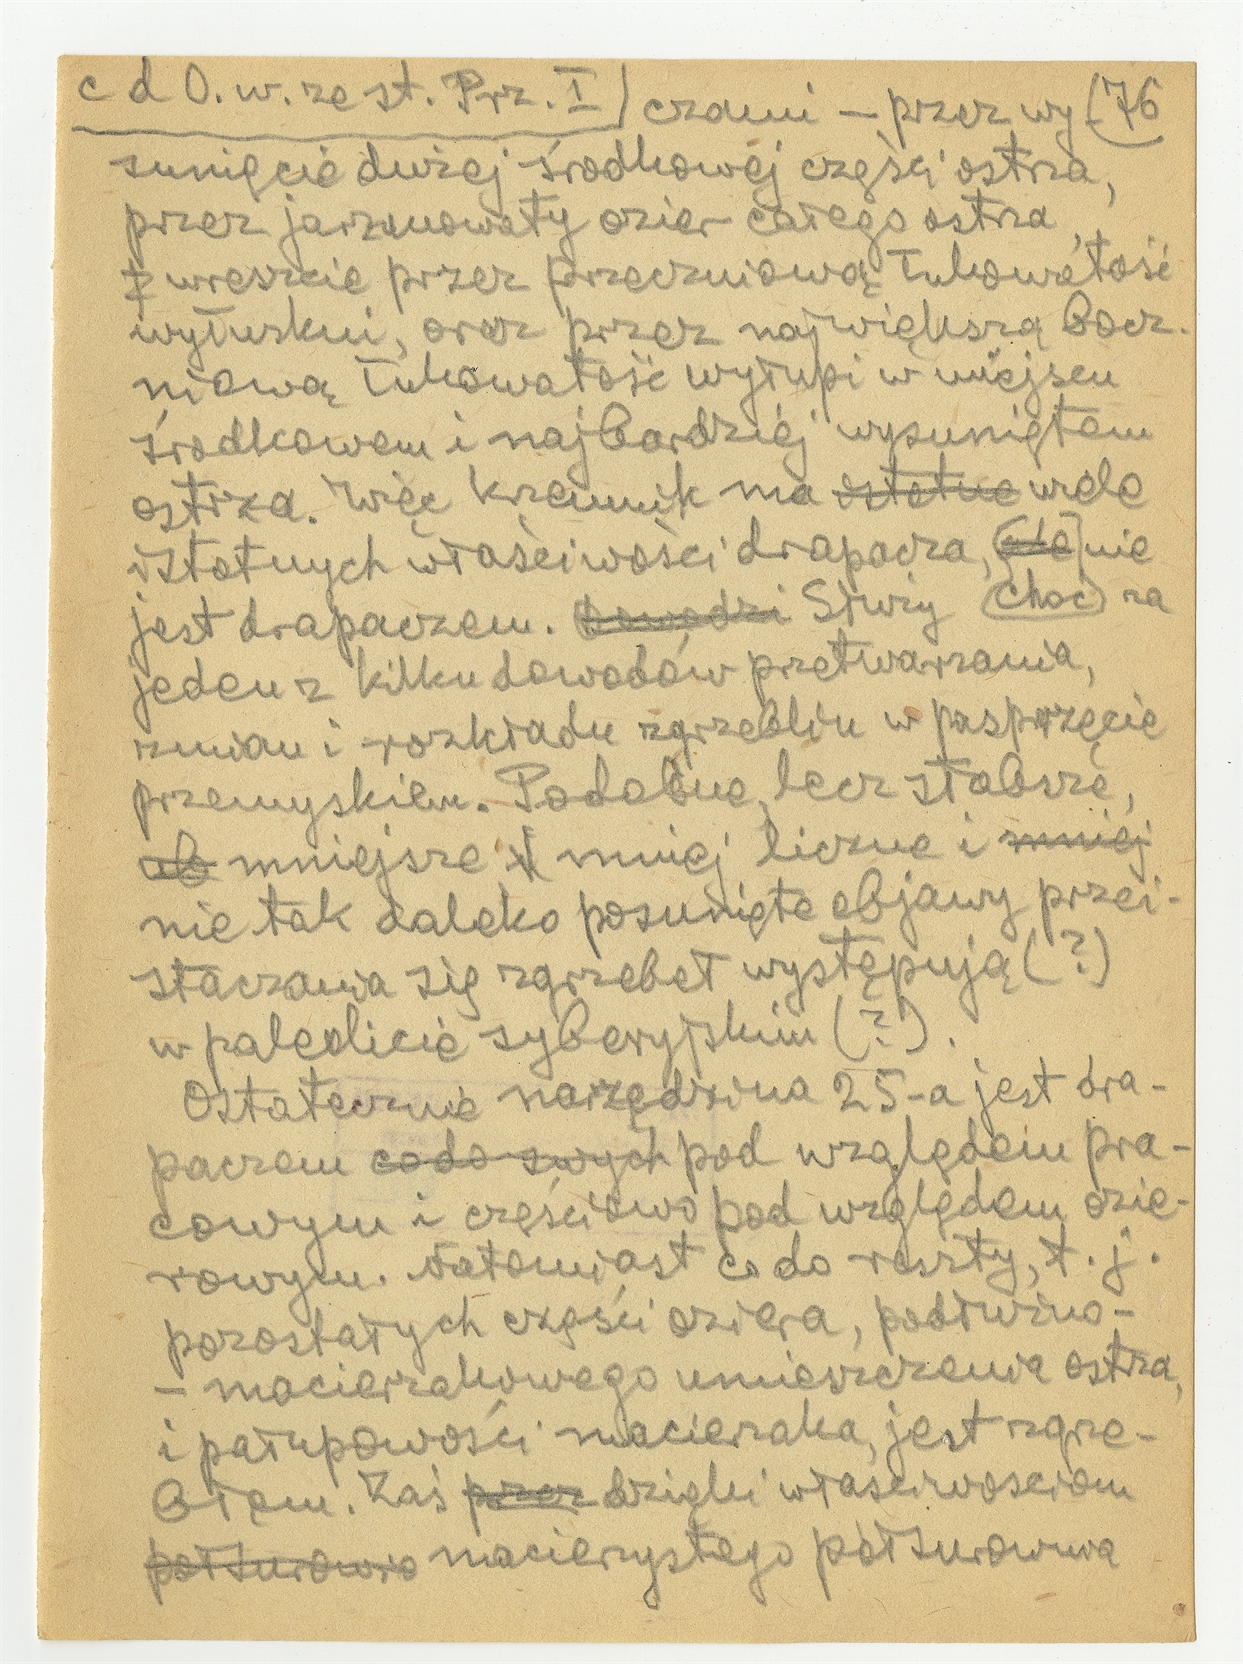 c d O. w. ze st. Prz. I) czami – przez wy (76
sunięcie dużej środkowej części ostrza,
przez jarzmowaty ozier całego ostrza,
wreszcie przez poprzeczniową łukowatość
wyłuskni, oraz przez największą bocz-
niową łukowatość wyłupi w miejscu
środkowem i najbardziej wysuniętem
ostrza. Więc krzemnik ma ostatne wiele
istotnych właściwości drapacza, (ale) nie
jest drapaczem. Dowodzi Służy (choć) za
jeden z kilku dowodów przetwarzania,
zmian i rozkładu zgrzeblin w pasprzęcie
przemyskiem. Podobne, lecz słabsze,
ab mniejsze i mniej liczne i mniej
nie tak daleko posunięte objawy przei-
staczania się zgrzebeł występują (?)
w paleolicie syberyjskim (?).
Ostatecznie narzędzina 25-a jest dra-
paczem co do swych pod względem pra-
cowym i częściowo pod względem ozie-
rowym. Natomiast co do reszty, t. j.
pozostałych części oziera, podłużno-
– macierzakowego umieszczenia ostrza,
i połupowości macierzaka, jest zgrze-
błem. Zaś przez dzięki właściwościom
półsurowia macierzystego półsurowiwa